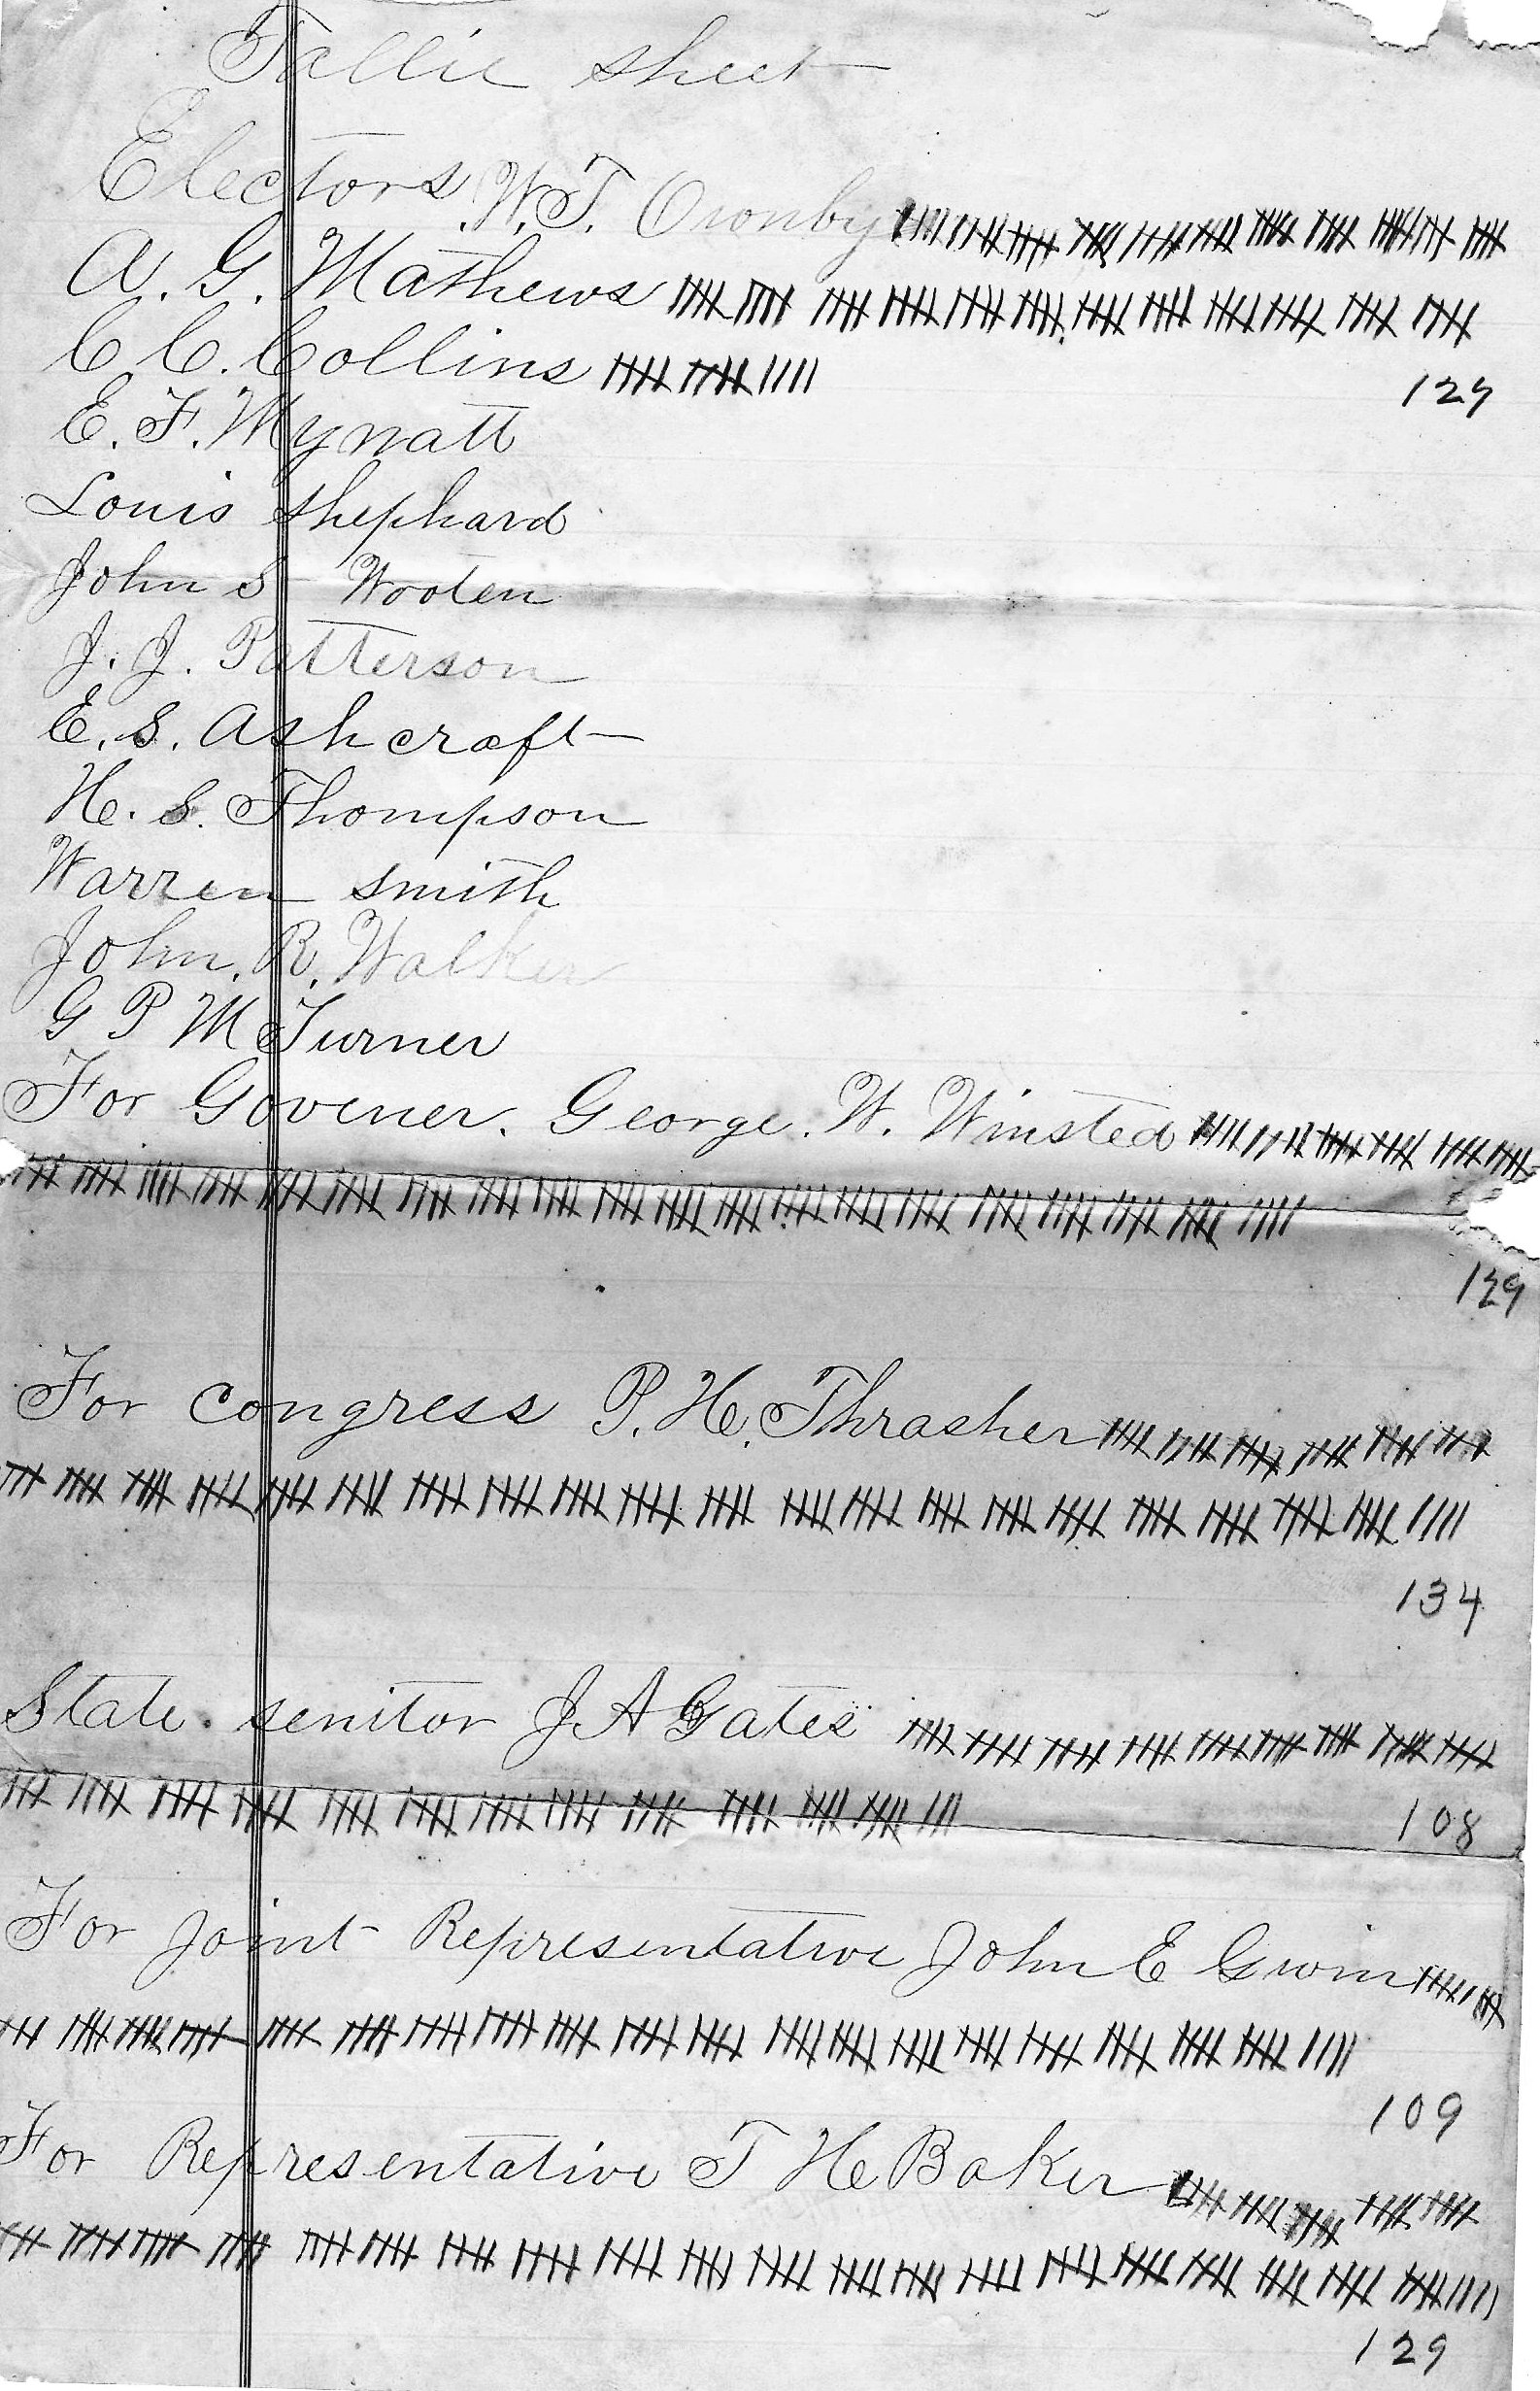 Tallie sheet
Electors W.T. Cronby
A. G. Mathews
C C. Collins 129
E. F. Mynatt
Louis Shephard
John S Wooten
J. J. Patterson
E. S. Ashcraft
H. S. Thompson
Warren Smith
John. R. Walker
G P M Turner
For Govener. George. W. Winsted
129
For congress P. H. Thrasher
134
State senitor J A Gates
108
For Joint Representative John E Gwin
109
For Representative T H Baker
129